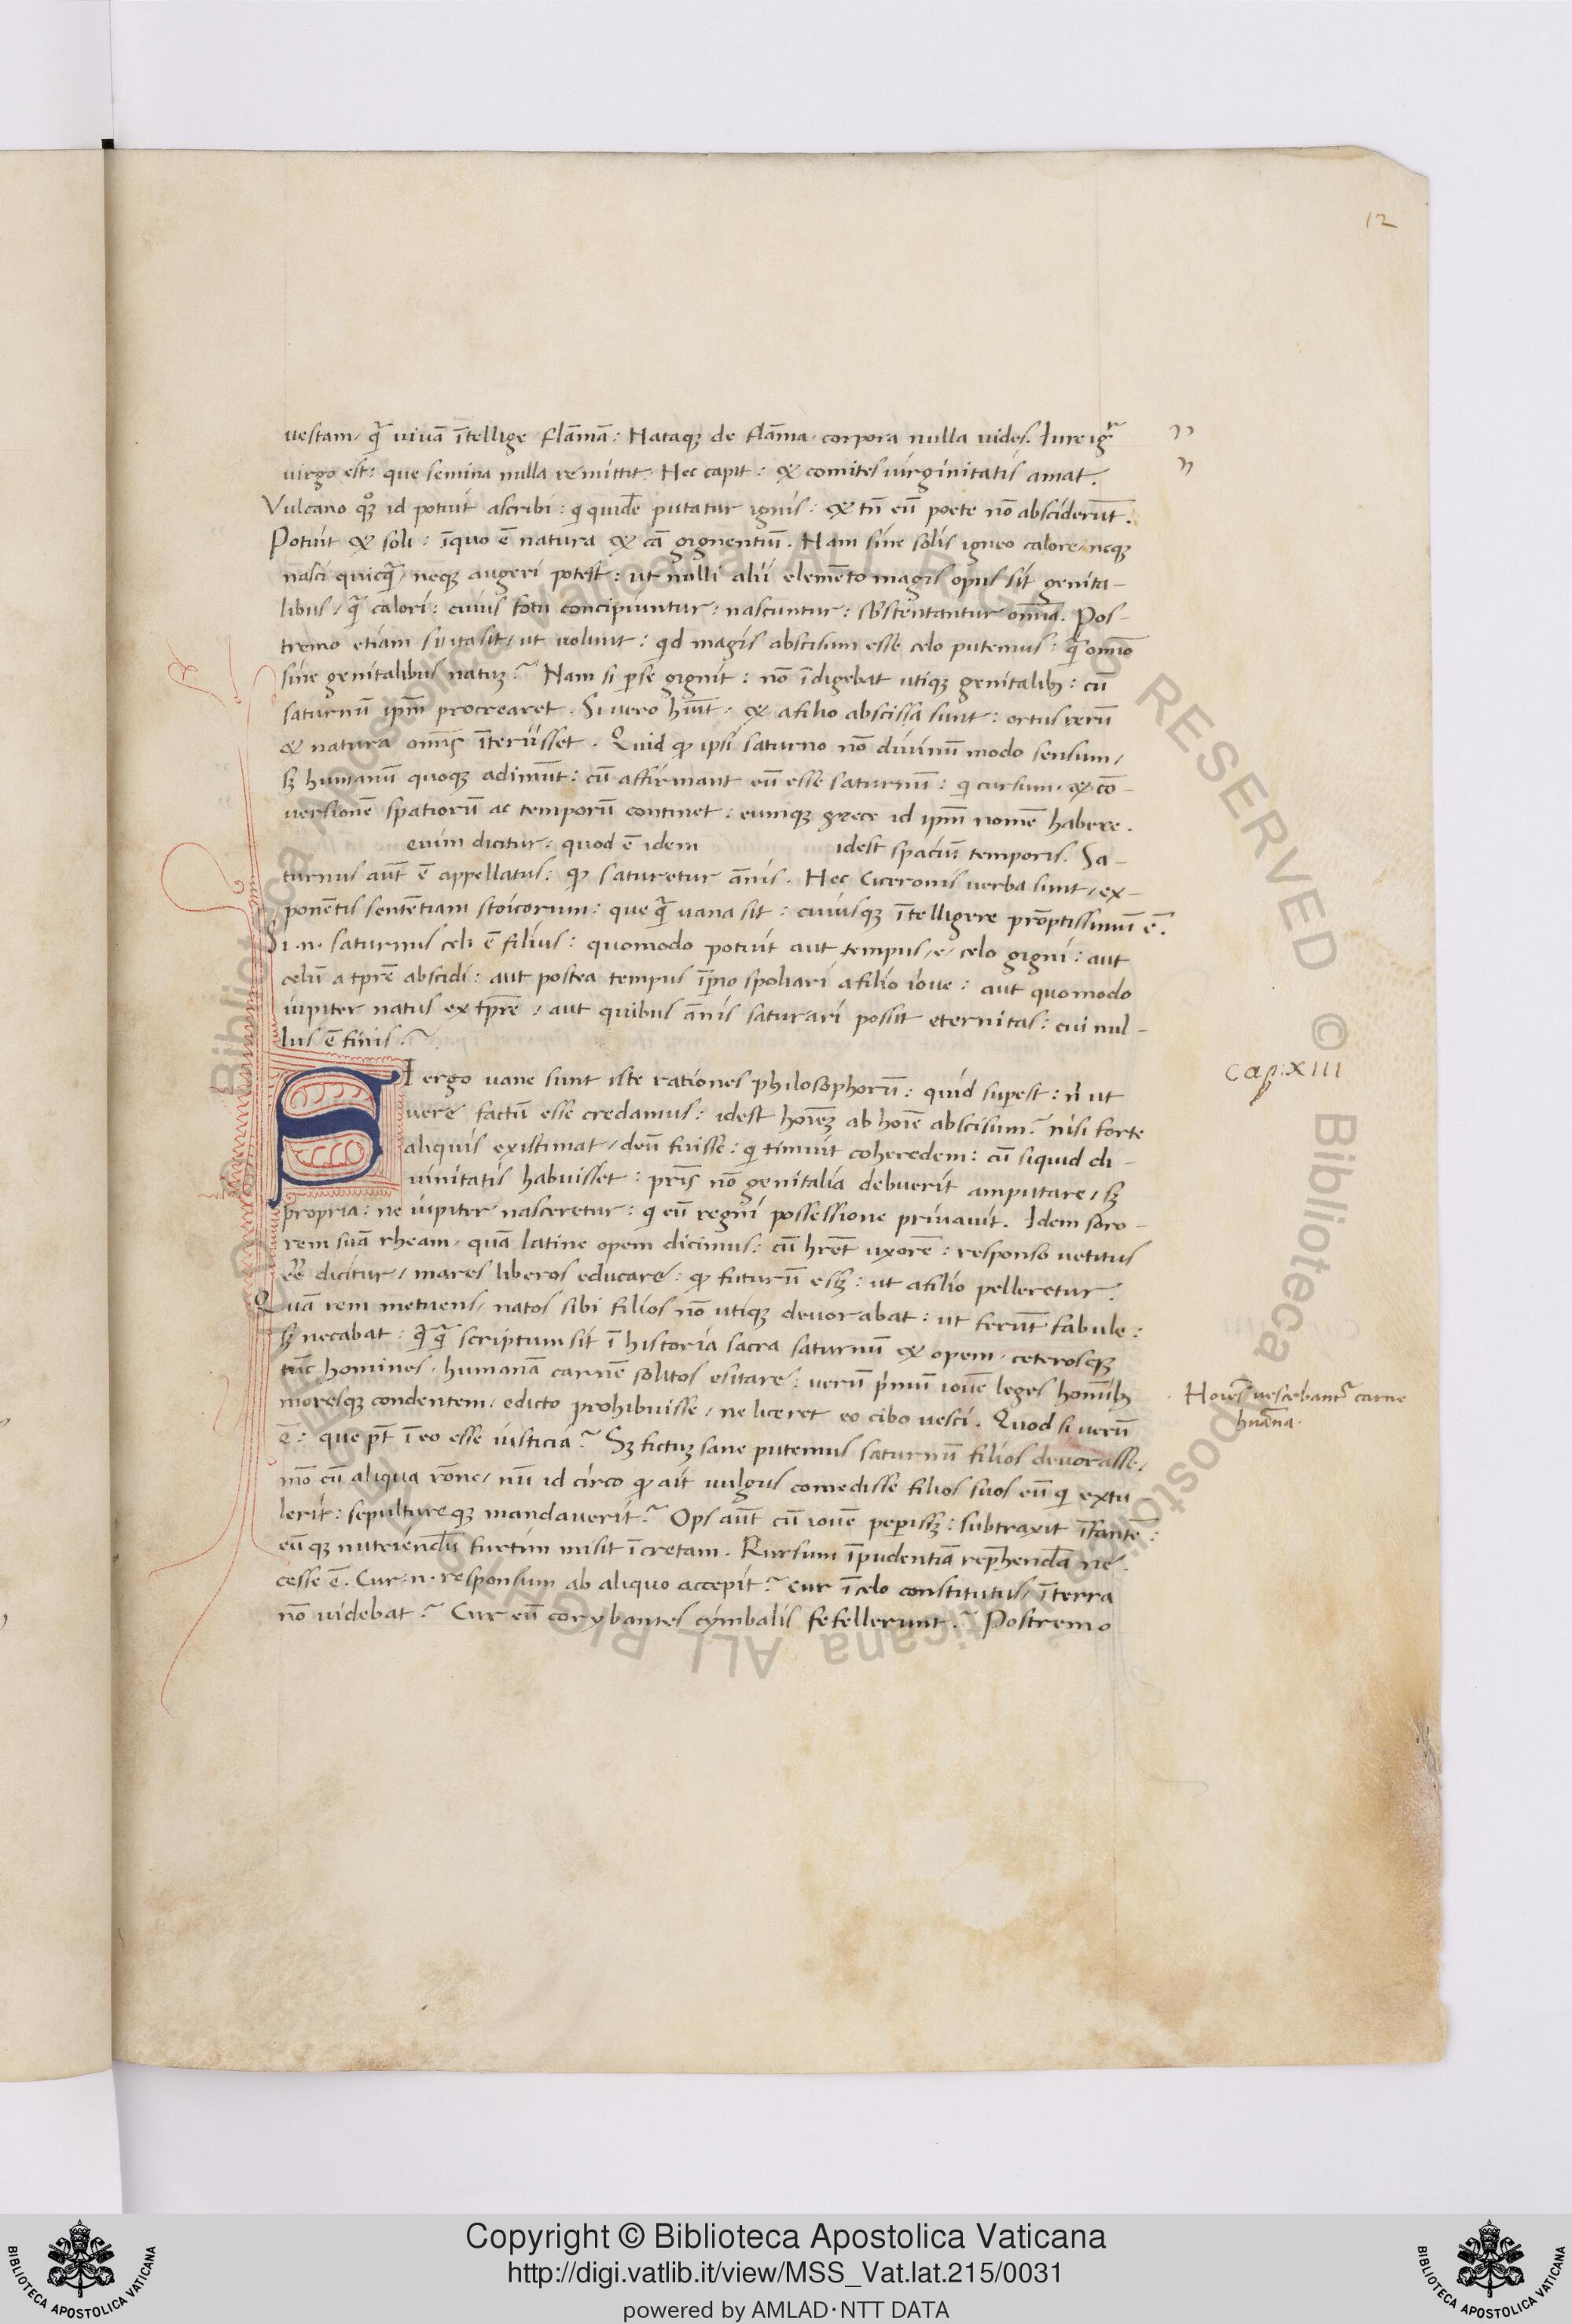 12
vestam / q̃ȝ vivã ĩtellige flãmã : Nataqȝ de flãma corpora nulla vides. Iure igr̃
virgo est : que semina nulla remittit. Nec capit : & comites virginitatis amat.
Vulcano qȝ id potuit ascribi : qi quidẽ putatur ignis : & tñ eũ poete nõ absciderũt.
Potuit & soli : ĩquo ẽ natura & cã gignentiũ. Nam sine solis igneo calore / neqȝ
nasci quicq̃ȝ / neqȝ augeri potest : ut nulli alii elemẽto magis opus sit genita-
libus / q̃ȝ calori : cuius fotu concipiuntur : nascuntur : sustentantur omĩa. Pos-
tremo etiam si ita sit / ut volunt : qd magis abscisum esse celo putemus : q̃ȝ omĩo
sine genitalibus natuȝ? Nam si per se gignit : nõ ĩdigebat utiqȝ genitalibȝ : cũ
saturnũ ipm̃ procrearet. Si vero hũit : & afilio abscissa sunt : ortus rerũ
& natura omĩs ĩteriisset. Quid qɔ ipsi saturno nõ divinũ modo sensum /
sȝ humanũ quoqȝ adimũt : cũ affirmant eũ esse saturnũ : qi cursum & cõ-
versionẽ spatiorũ ac temporũ continet : eumqȝ grece id ipm̃ nomẽ habere.
enim dicitur : quod ẽ idem idest spaciũ temporis. Sa-
turnus aũt ẽ appellatus : qɔ saturetur ãnis. Hec Ciceronis verba sunt / ex-
ponẽtis sentẽtiam stoicorum : que q̃ȝ vana sit : cuiusqȝ ĩtelligere prõptissimũ ẽ.
Si .n. saturnus celi ẽ filius : quomodo potuit aut tempus / e / celo gigni : aut
celũ a tpr̃e abscidi : aut postea tempus ĩperio spoliari afilio iove : aut quomodo
iupiter natus ex tpr̃e / aut quibus ãnis saturari possit eternitas : cui nul-
lus ẽ finis?
SI ergo vane sunt iste rationes philosophorũ : quid superest : ñ ut
vere factũ esse credamus : idest hoĩeȝ ab hoĩe abscisum? nisi forte
aliquis existimat / deũ fuisse : qi timuit coheredem : cũ siquid di-
vinitatis habuisset : pr̃is nõ genitalia debuerit amputare / sȝ
propria : ne iupiter nasceretur : qi eũ regni possessione privavit. Idem soro-
rem suã rheam / quã latine opem dicimus : cũ hr̃et uxorẽ : responso vetitus
eẽ dicitur / mares liberos educare : qɔ futurũ esseȝ : ut afilio pelleretur.
Quã rem metuens / natos sibi filios nõ utiqȝ devorabat : ut ferũt fabule :
sȝ necabat : q̃ȝq̃ȝ scriptum sit ĩ historia sacra saturnũ & opem / ceterosqȝ
tũc homines / humanã carnẽ solitos esitare : verũ primũ iovẽ leges homĩbȝ
moresqȝ condentem / edicto prohibuisse / ne liceret eo cibo vesci. Quod si verũ
ẽ : que pt̃ ĩ eo esse iusticia? Sȝ fictuȝ sane putemus saturnũ filios devorasse /
mõ cũ aliqua rõne / nũ id circo qɔ ait vulgus comedisse filios suos eũ qi extu
lerit : sepultureqȝ mandaverit? Ops aũt cũ iovẽ peperisseȝ : subtraxit ĩfantẽ :
eũqȝ nutriẽdũ furtim misit ĩ cretam. Rursum ĩpudentiã reprehendã ne-
cesse ẽ. Cur .n. responsum ab aliquo accepit? cur ĩ celo constitutus / ĩ terra
nõ videbat? Cur eũ corybantes cymbalis fefellerunt? Postremo
cap. XIII
Hoĩes vescebant̃ carne
huãna.
Copyright © Biblioteca Apostolica Vaticana
http://digi.vatlib.it/view/MSS_Vat.lat.215/0031
powered by AMLAD·NTT DATA
BIBLIOTECA APOSTOLICA VATICANA
BIBLIOTECA APOSTOLICA VATICANA